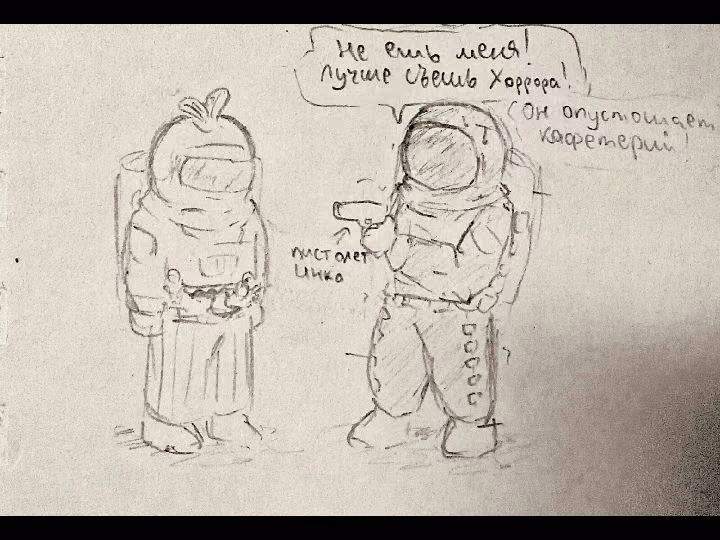 Не ешь меня!
Лучше съешь Хоррора!
(Он опустошает
кафетерий!
пистолет
Инка